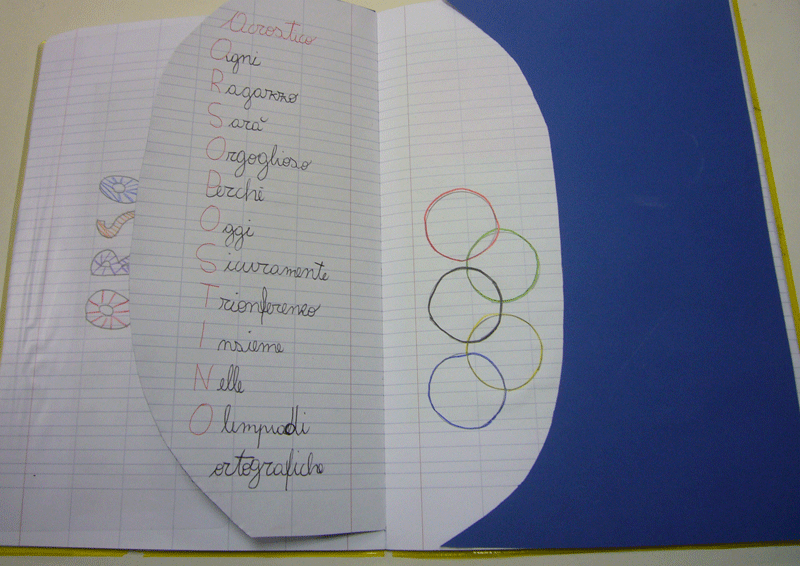 Acrostico
Ogni
Ragazzo
Sarà
Orgoglioso
Perchè
Oggi
Sicuramente
Trionferemo
Insieme
Nelle
Olimpiadi
ortografiche